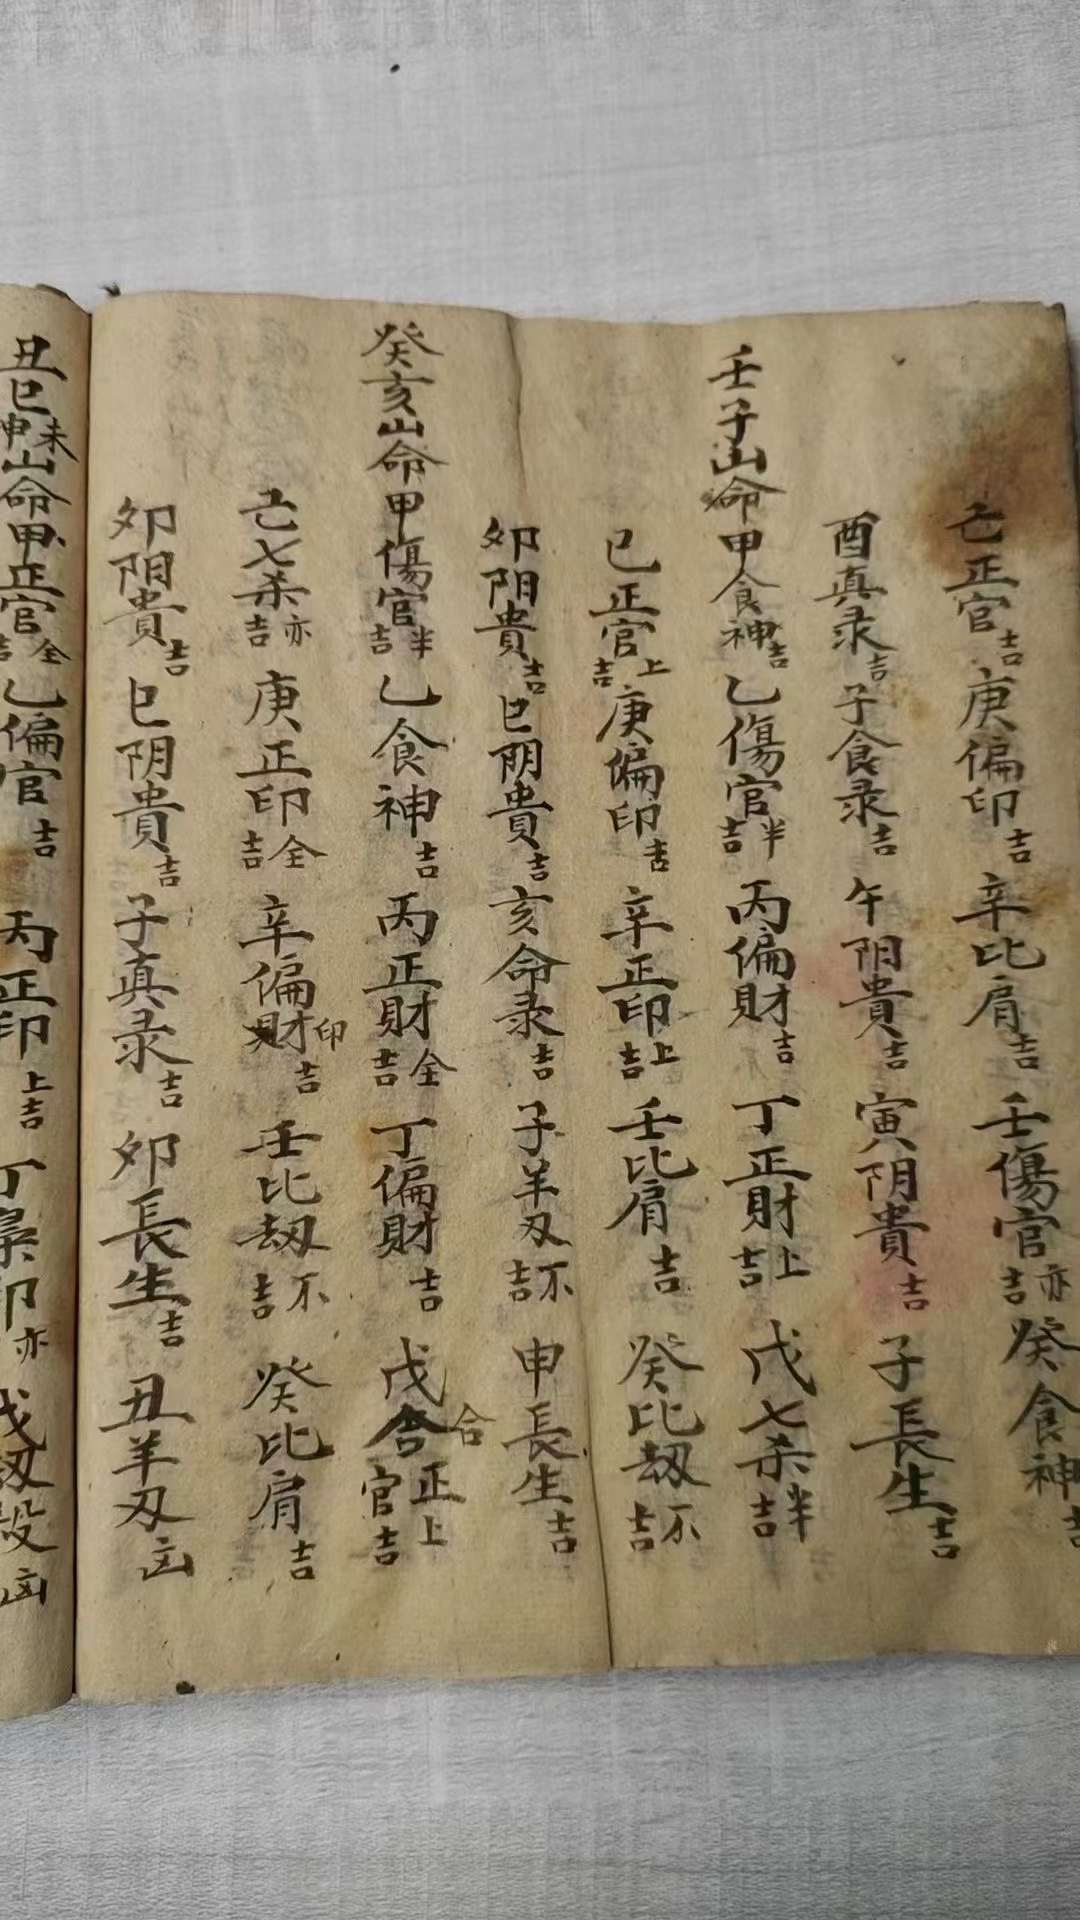 己正官吉庚偏印吉辛比肩吉壬傷官亦吉癸食神吉
酉真录吉子食录吉午阴貴吉寅阴貴吉子長生吉
壬子山命甲食神吉乙傷官半吉丙偏財吉丁正財上吉戊七杀半吉
己正官上吉庚偏印吉辛正印上吉壬比肩吉癸比劫不吉
卯阴貴吉巳阴貴吉亥命录吉子羊刃不吉申長生吉
癸亥山命甲傷官半吉乙食神吉丙正財全吉丁偏財吉戊合合正官上吉
己七杀亦吉庚正印全吉辛偏財印吉壬比劫不吉癸比肩吉
卯阴貴吉巳阴貴吉子真录吉卯長生吉丑羊刃凶
丑巳申未山命甲正官全吉乙偏官吉丙正印上吉丁梟印亦戊刼殺凶